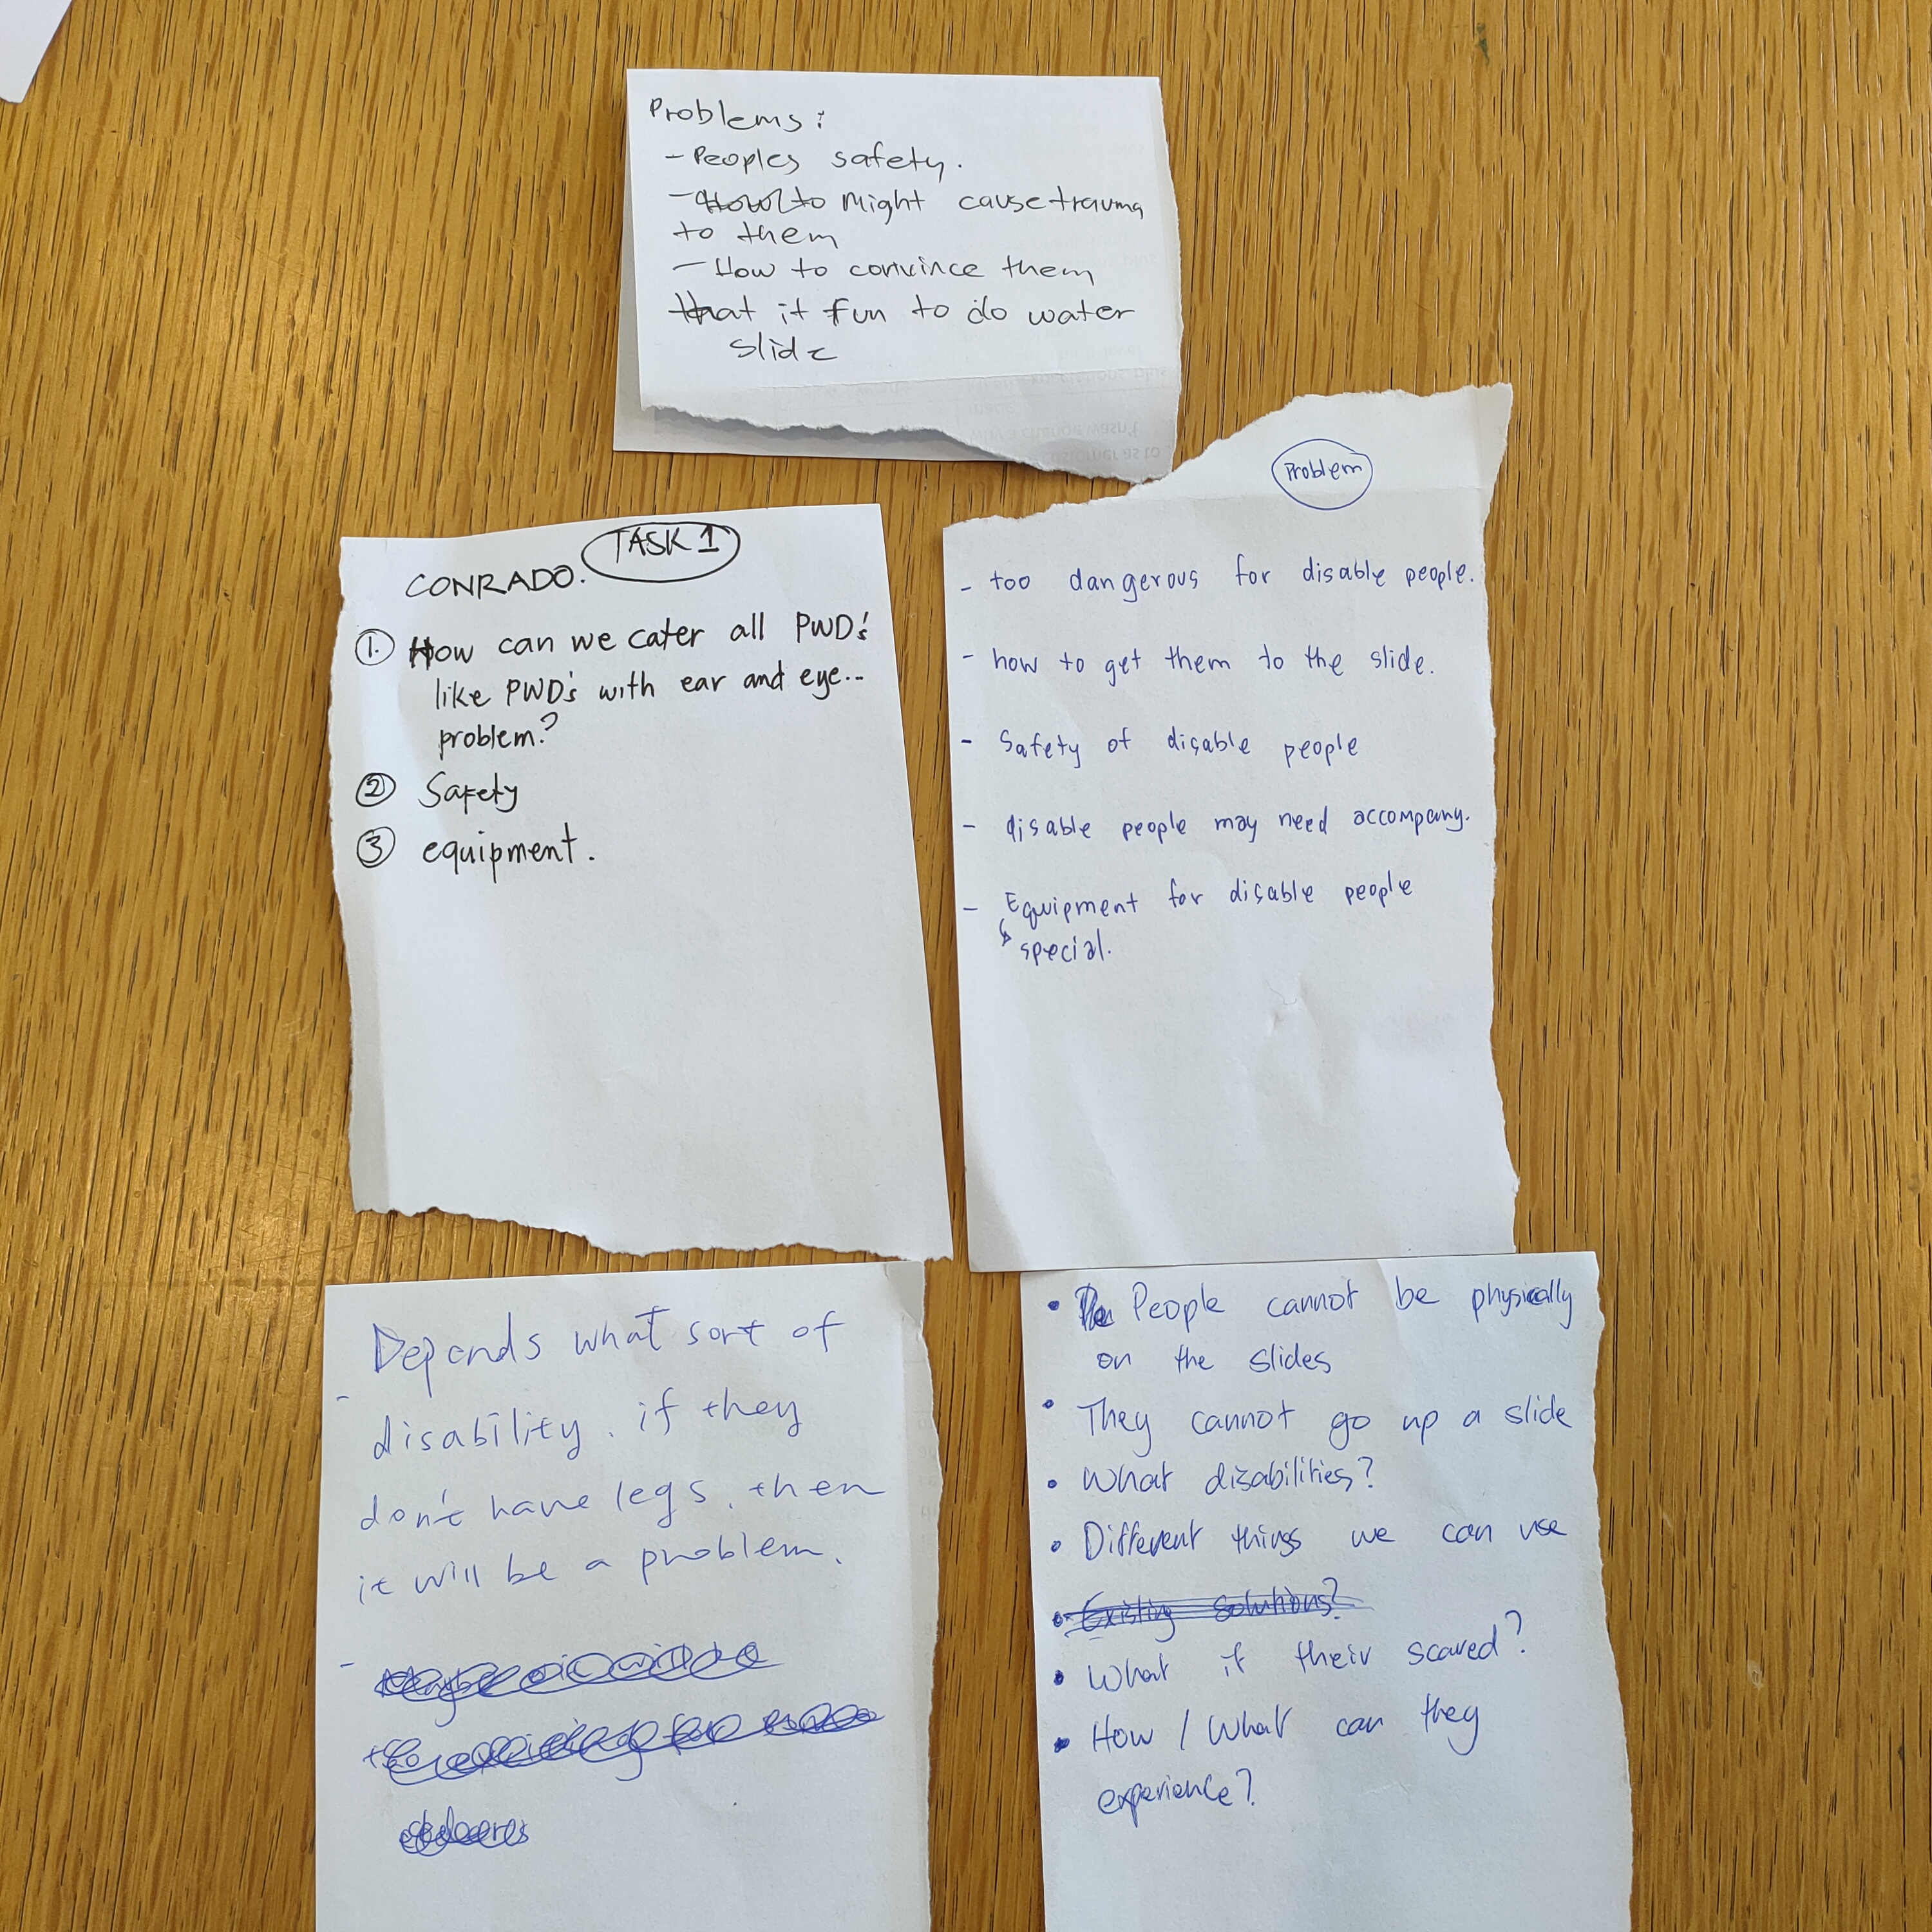 Problems:
- Peoples safety.
- How to Might cause trauma
to them
- How to convince them
that it fun to do water
slide
TASK 1
CONRADO.
1. How can we cater all PWD's
like PWD's with ear and eye...
problem?
2 Safety
3 equipment.
Problem
- too dangerous for disable people.
- how to get them to the slide.
- Safety of disable people
- disable people may need accompany.
- Equipment for disable people
↳ special.
Depends what sort of
- disability. if they
don't have legs, then
it will be a problem.
-
• Pe People cannot be physically
on the slides
• They cannot go up a slide
• What disabilities?
• Different things we can use
• Existing solutions?
• What if their scared?
• How / What can they
experience?